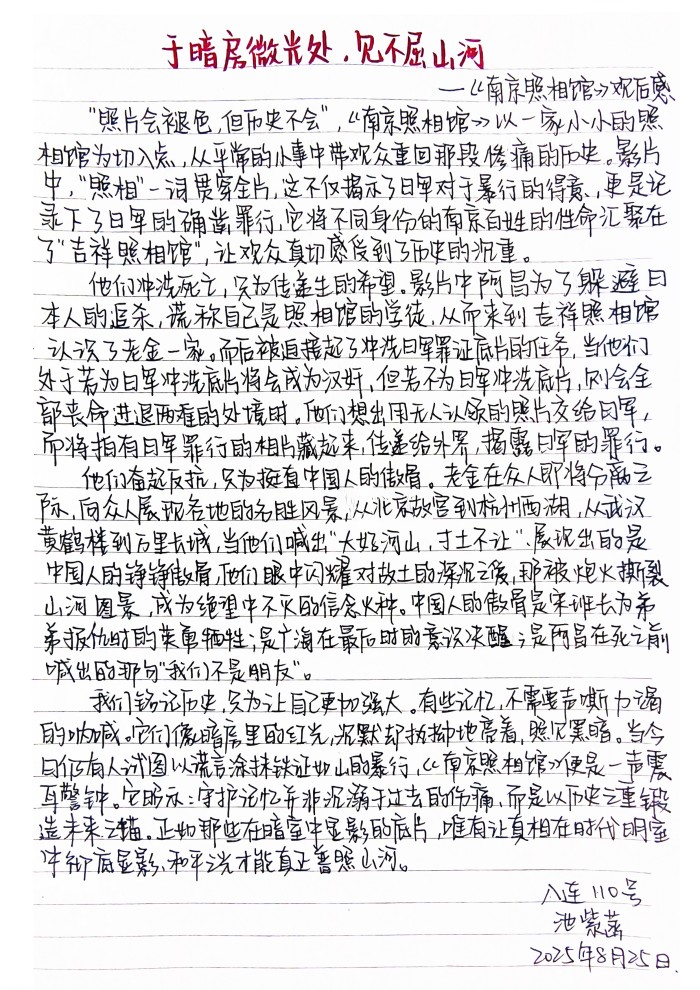 于暗房微光处，见不屈山河
—《南京照相馆》观后感
"照片会褪色，但历史不会"，《南京照相馆》以一家小小的照
相馆为切入点，从平常的小事中带观众重回那段惨痛的历史。影片
中，"照相"一词贯穿全片，这不仅揭示了日军对于暴行的得意，更是记
录下了日军的确凿罪行，它将不同身份的南京百姓的性命汇聚在
了"吉祥照相馆"，让观众真切感受到了历史的沉重。
他们冲洗死亡，只为传递生的希望。影片中阿昌为了躲避日
本人的追杀，谎称自己是照相馆的学徒，从而来到吉祥照相馆
认识了老金一家。而后被迫接起了冲洗日军罪证底片的任务，当他们
处于若为日军冲洗底片将会成为汉奸，但若不为日军冲洗底片，则会全
部丧命进退两难的处境时。他们想出用无人认领的照片交给日军，
而将拍有日军罪行的相片藏起来，传递给外界，揭露日军的罪行。
他们奋起反抗，只为挺直中国人的傲骨。老金在众人即将分离之
际，向众人展现各地的名胜风景，从北京故宫到杭州西湖，从武汉
黄鹤楼到万里长城，当他们喊出"大好河山，寸土不让"、展现出的是
中国人的铮铮傲骨，他们眼中闪耀对故土的深沉之爱，那被炮火撕裂
山河图景，成为绝望中不灭的信念火种。中国人的傲骨是宋班长为弟
弟报仇时的英勇牺牲；是广海在最后时的意识决醒；是阿昌在死之前
喊出的那句"我们不是朋友"。
我们铭记历史，只为让自己更加强大。有些记忆，不需要声嘶力竭
的呐喊。它们像暗房里的红光，沉默却执拗地亮着，照见黑暗。当今
日仍有人试图以谎言涂抹铁证如山的暴行，《南京照相馆》便是一声震
耳警钟。它昭示：守护记忆并非沉溺于过去的伤痛，而是以历史之重锻
造未来之锚。正如那些在暗室中显影的底片，唯有让真相在时代明室
中彻底显影，和平之光才能真正普照山河。
八连110号
池紫菡
2025年8月25日.